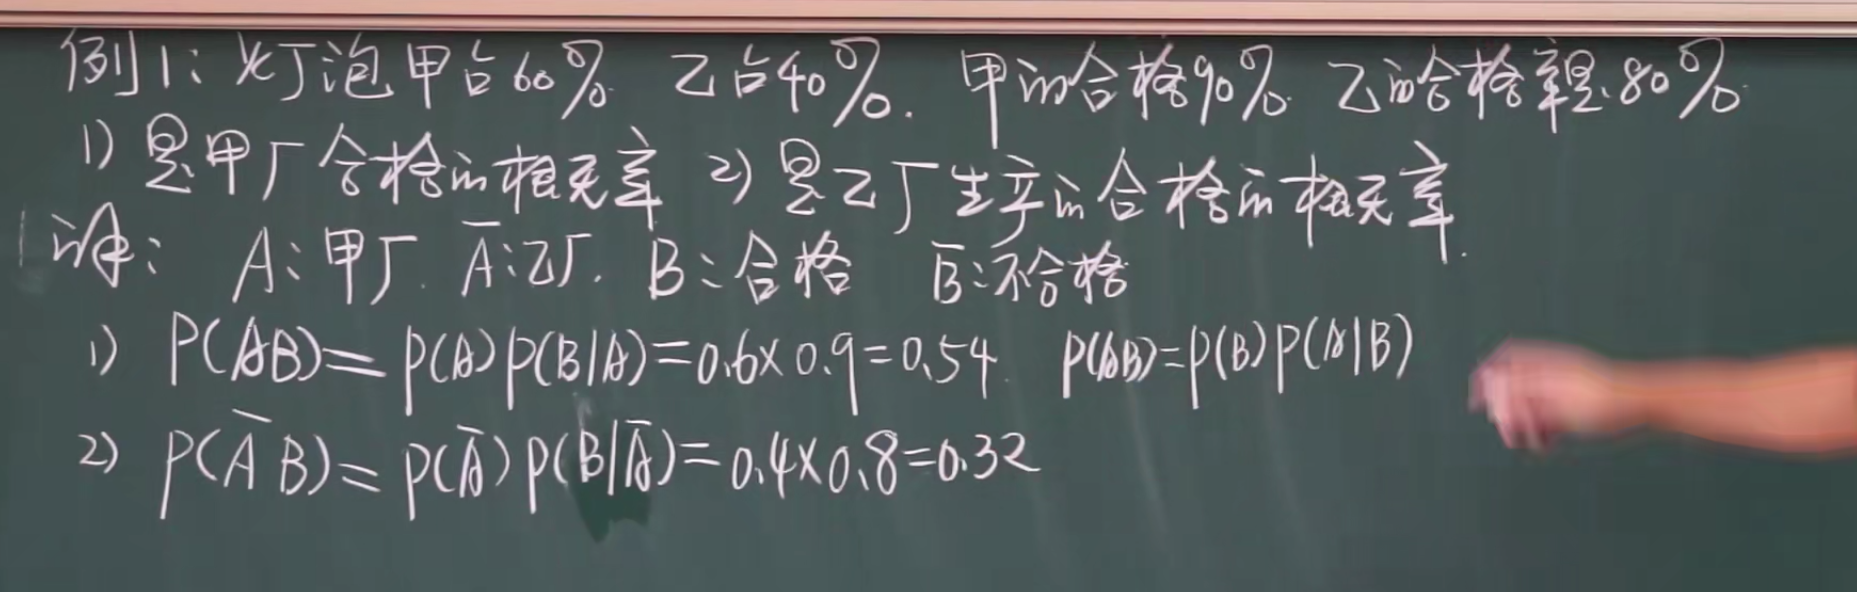 例1：灯泡甲占60% 乙占40%. 甲的合格90% 乙的合格率是80%
1) 是甲厂合格的概率 2) 是乙厂生产的合格的概率.
解： A：甲厂. Ā：乙厂. B：合格 B̄：不合格
1) P(AB)=P(A)P(B|A)=0.6×0.9=0.54 P(AB)=P(B)P(A|B)
2) P(ĀB)=P(Ā)P(B|Ā)=0.4×0.8=0.32